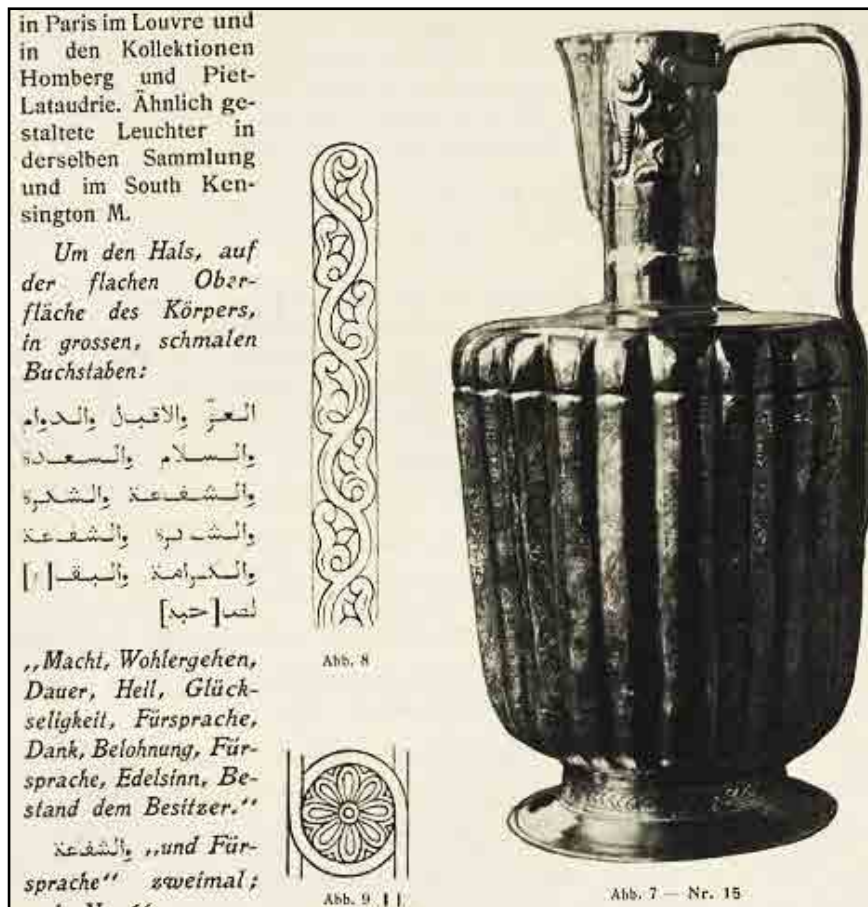 in Paris im Louvre und
in den Kollektionen
Homberg und Piet-
Lataudrie. Ähnlich ge-
staltete Leuchter in
derselben Sammlung
und im South Ken-
sington M.
Um den Hals, auf
der flachen Ober-
fläche des Körpers,
in grossen, schmalen
Buchstaben:
العزّ والاقبل والدوام
والسلام والسعدة
والشفعة والشكرة
والشفعة
والكرامة والبقا[ء]
لصا[حبه]
„Macht, Wohlergehen,
Dauer, Heil, Glück-
seligkeit, Fürsprache,
Dank, Belohnung, Für-
sprache, Edelsinn, Be-
stand dem Besitzer.“
والشفعة „und Für-
sprache“ zweimal;
Abb. 8
Abb. 9
Abb. 7 — Nr. 15